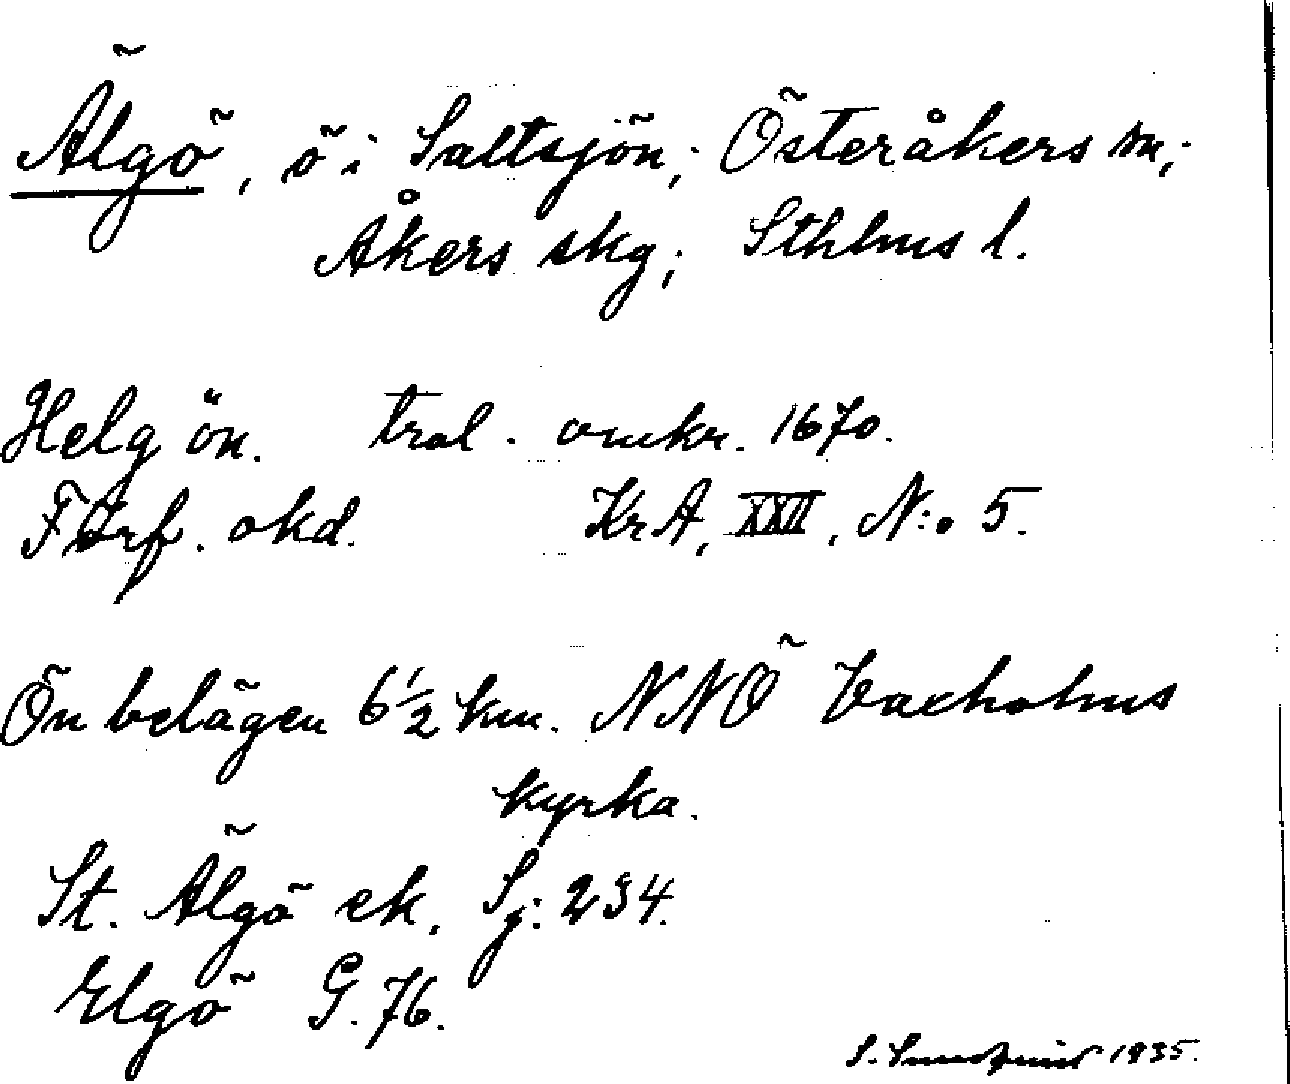 Älgö, ö i Saltsjön; Österåkers sn;
Åkers skg; Sthlms l.
Helgön. trol. omkr. 1670.
Förf. okd. KrA, XXVI, N:o 5.
Ön belägen 6 1/2 km. NNÖ Vaxholms
kyrka.
St. Älgö ek. Sj: 234.
Elgö G. 76.
S. 1935.